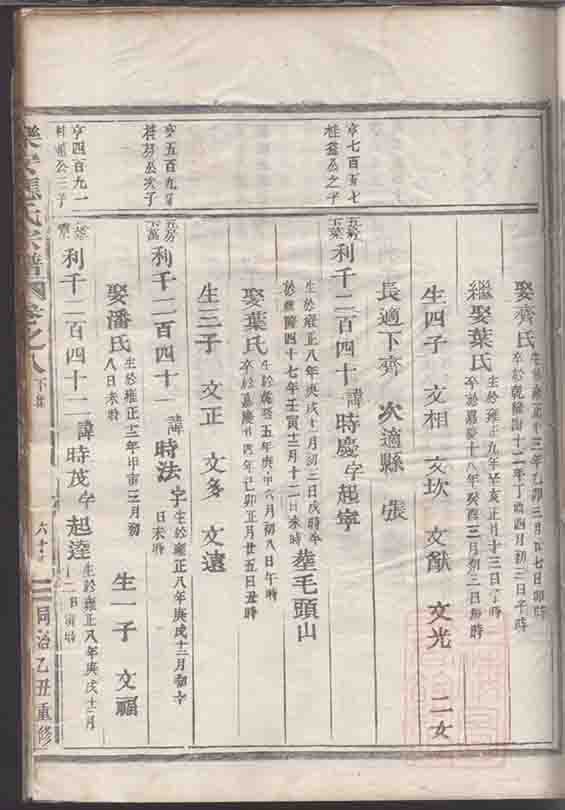 娶齊氏
生於雍正十三年乙卯三月廿七日卯時
卒於乾隆四十二年丁酉四月初二日午時
繼娶葉氏
生於雍正九年辛亥正月十三日丁時
卒於嘉慶十八年癸酉三月初三日無時
生四子 文相 文坎 文猷 文光 二女
長適下齊 次適縣 張
亨七百五七
桂益公之子
五房
下葉
利千二百四十 諱時慶字起寧
生於雍正八年庚戌十一月初三日戌時卒
於乾隆四十七年壬寅十二月十二日未時
塟毛頭山
娶葉氏
生於乾隆五年庚申六月初八日午時
卒於嘉慶廿四年己卯正月廿五日丑時
生三子 文正 文多 文遠
亨五百九
桂芳公次子
五房
下萬
利千二百四十一 諱時法 字
生於雍正八年庚戌十二月初
日未時
娶潘氏
生於雍正十二年甲寅三月初
八日未時
生一子 文福
亨四百九一
公三子
利千二百四十二 諱時茂字起達
生於雍正八年庚戌十二月
十二日寅時
樂安蔣氏宗譜 卷之八 同治乙丑重修